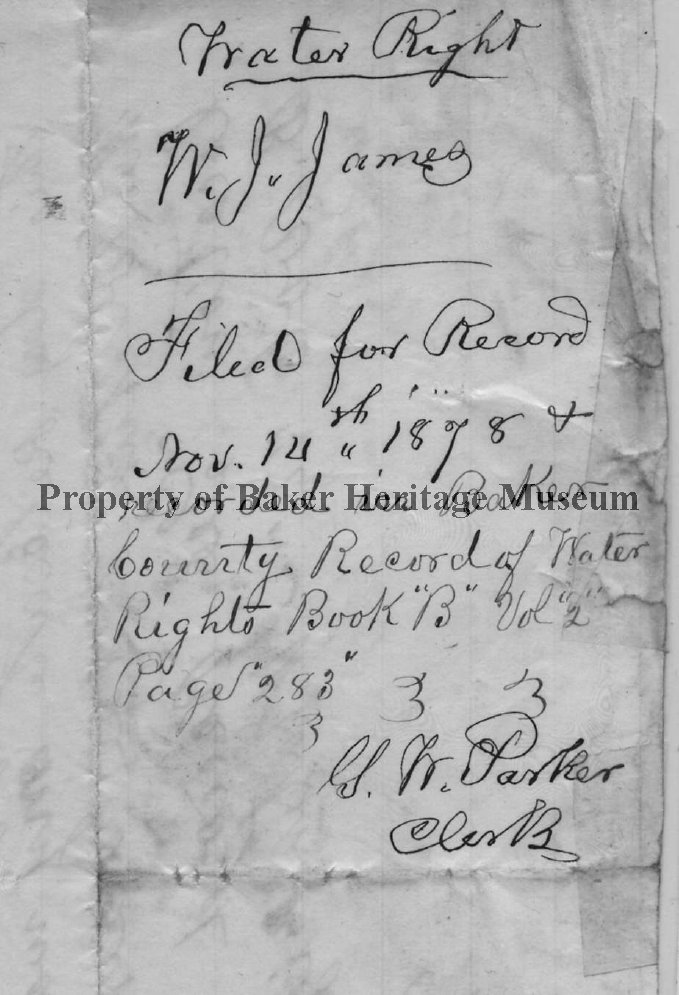 Water Right
W. J. James
Filed for Record
Nov. 14th 1878 &
Property of Baker Heritage Museum
recorded in Baker
County Record of Water
Rights Book "B" Vol "2"
Page "283"
G. W. Parker
Clerk